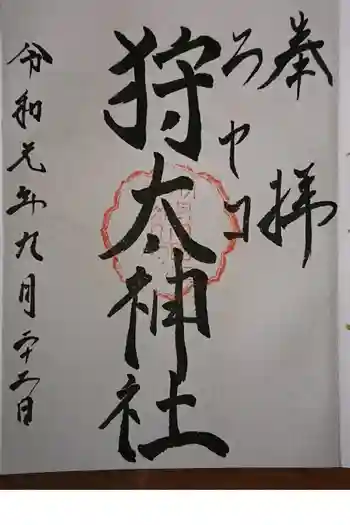 奉拝
ろヤコ
狩太神社
令和元年九月二十二日